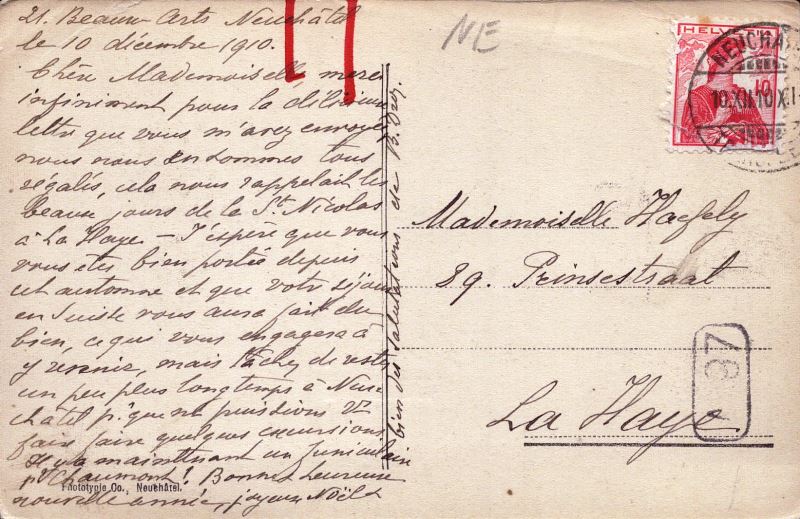 21. Beaux Arts Neuchâtel
le 10 décembre 1910.
Chère Mademoiselle, merci
infiniment pour la délicieuse
lettre que vous m'avez envoyée
nous nous en sommes tous
régalés, cela nous rappelait les
beaux jours de la St. Nicolas
à La Haye – J'espère que vous
vous êtes bien portée depuis
cet automne et que votre séjour
en Suisse vous aura fait du
bien, ce qui vous engagera à
y revenir, mais tâchez de rester
un peu plus longtemps à Neu-
châtel p. que ns puissions vs
faire faire quelques excursions
Il y a maintenant un funiculaire
pr Chaumont! Bonne et heureuse
nouvelle année, joyeux Noël
Phototypie Co., Neuchâtel.
bien des salutations de B.
NE
HELVETIA
10
NEUCHÂT
10.XII.10 XI-
Mademoiselle Haefely
89. Prinsestraat
La Haye
87